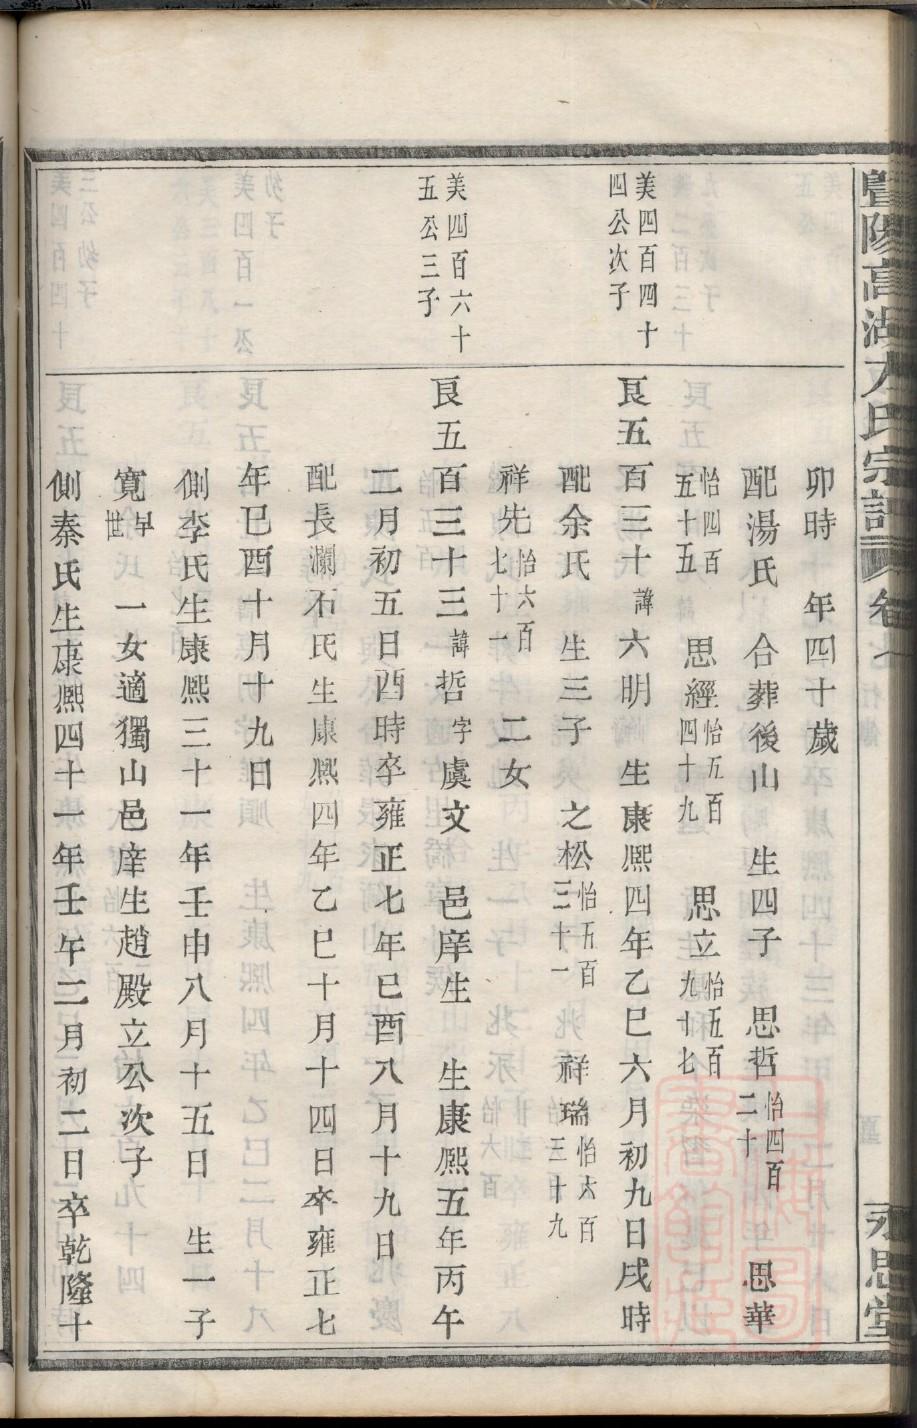 暨陽高湖方氏宗譜 卷七 永思堂
卯時 年四十歲
配湯氏 合葬後山 生四子 思哲怡四百二十 思華
怡四百五十五 思經怡五百四十九 思立怡五百九十七
美四百四十四公次子
良五百三十諱六明 生康熙四年乙巳六月初九日戌時
配余氏 生三子 之松怡五百三十一 祥瑞怡六百三十九
祥先怡六百七十一 二女
美四百六十五公三子
良五百三十三諱哲字虞文 邑庠生 生康熙五年丙午
二月初五日酉時卒雍正七年巳酉八月十九日
配長瀾石氏生康熙四年乙巳十月十四日卒雍正七
年巳酉十月十九日
側李氏生康熙三十一年壬申八月十五日 生一子
寬早世 一女適獨山邑庠生趙殿立公次子
側秦氏生康熙四十一年壬午二月初二日卒乾隆十